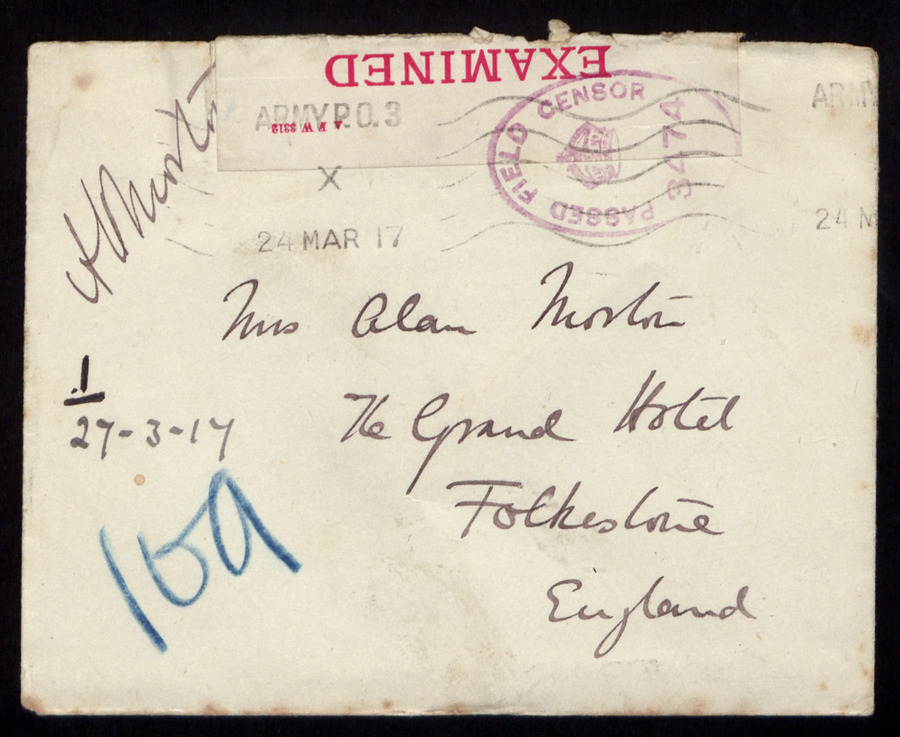 EXAMINED
A F W 3312
ARMY P.O. 3
X
24 MAR 17
PASSED FIELD CENSOR
3474
ARMY
24 M
Mrs Alan Morton
The Grand Hotel
Folkestone
England
1
27-3-17